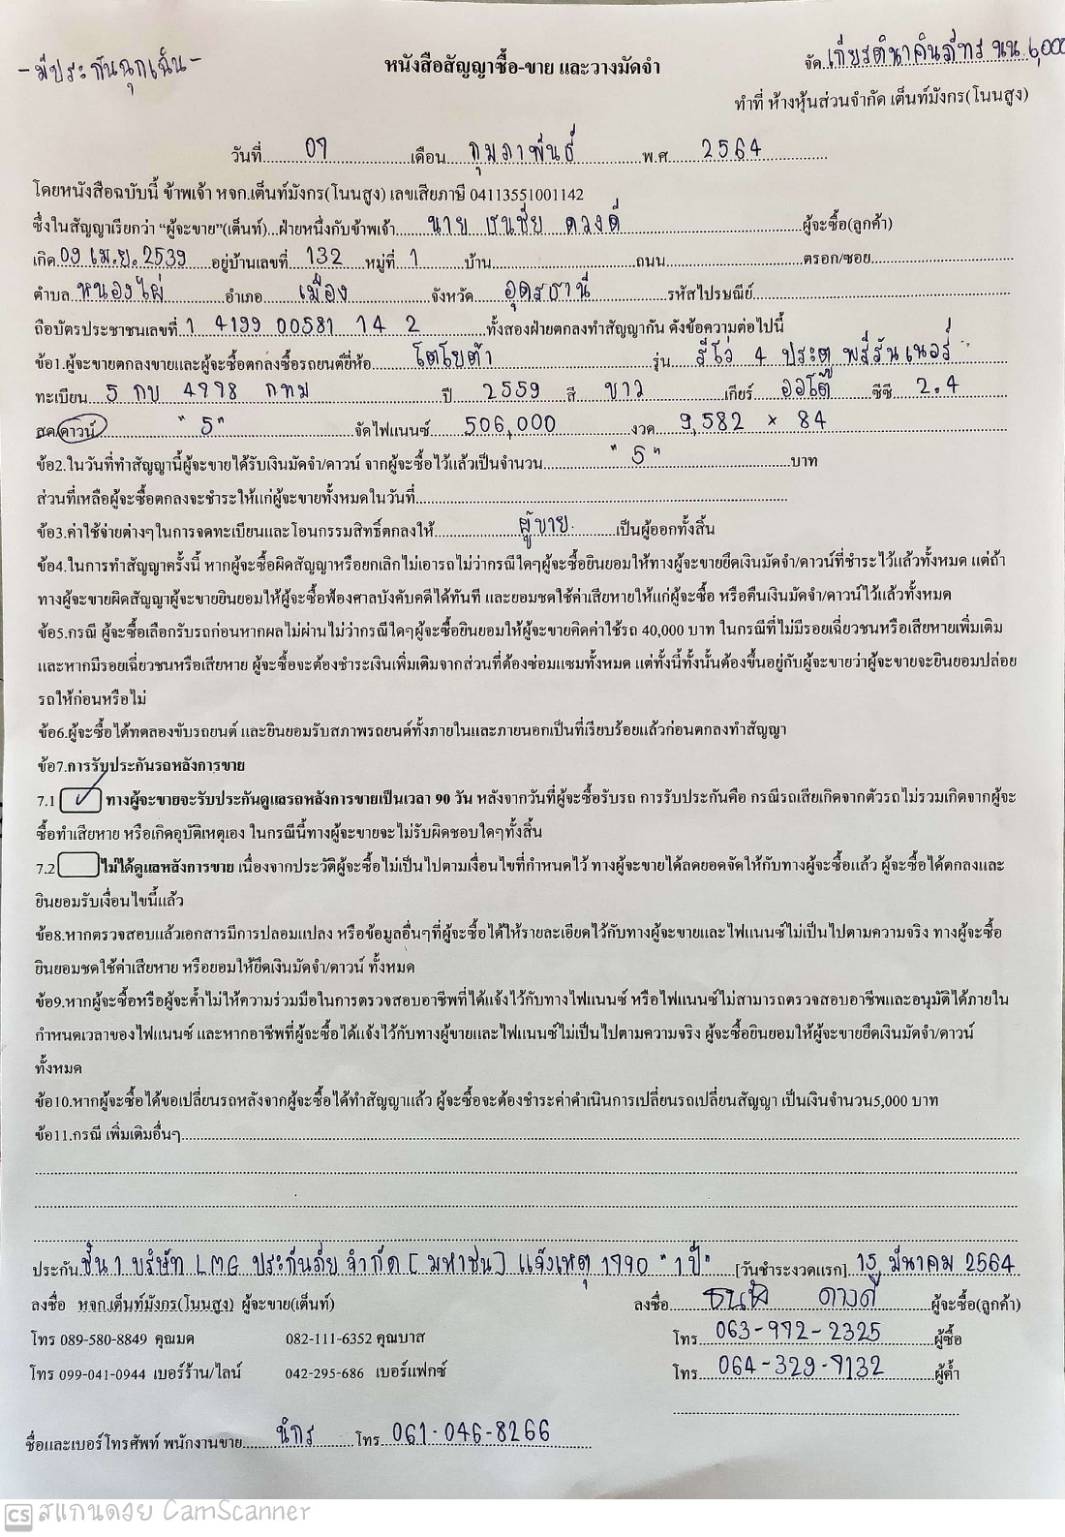 -มีประกันฉุกเฉิน-
หนังสือสัญญาซื้อ-ขาย และวางมัดจำ
จัด เกียรตินาคินภัทร นน 6,000
ทำที่ ห้างหุ้นส่วนจำกัด เต็นท์มังกร(โนนสูง)
วันที่ 09 เดือน กุมภาพันธ์ พ.ศ. 2564
โดยหนังสือฉบับนี้ ข้าพเจ้า หจก.เต็นท์มังกร(โนนสูง) เลขเสียภาษี 04113551001142
ซึ่งในสัญญาเรียกว่า "ผู้จะขาย"(เต็นท์)...ฝ่ายหนึ่งกับข้าพเจ้า นาย ธนชัย ดวงดี ผู้จะซื้อ(ลูกค้า)
เกิด 09 เม.ย. 2539 อยู่บ้านเลขที่ 132 หมู่ที่ 1 บ้าน ถนน ตรอก/ซอย
ตำบล หนองไผ่ อำเภอ เมือง จังหวัด อุดรธานี รหัสไปรษณีย์
ถือบัตรประชาชนเลขที่ 1 4199 00581 14 2 ทั้งสองฝ่ายตกลงทำสัญญากัน ดังข้อความต่อไปนี้
ข้อ1.ผู้จะขายตกลงขายและผู้จะซื้อตกลงซื้อรถยนต์ยี่ห้อ โตโยต้า รุ่น รีโว่ 4 ประตู พรีรันเนอร์
ทะเบียน 5 กบ 4998 กทม ปี 2559 สี ขาว เกียร์ ออโต้ ซีซี 2.4
สด/ดาวน์ "5" จัดไฟแนนซ์ 506,000 งวด 9,582 × 84
ข้อ2.ในวันที่ทำสัญญานี้ผู้จะขายได้รับเงินมัดจำ/ดาวน์ จากผู้จะซื้อไว้แล้วเป็นจำนวน "5" บาท
ส่วนที่เหลือผู้จะซื้อตกลงจะชำระให้แก่ผู้จะขายทั้งหมดในวันที่
ข้อ3.ค่าใช้จ่ายต่างๆในการจดทะเบียนและโอนกรรมสิทธิ์ตกลงให้ ผู้ขาย เป็นผู้ออกทั้งสิ้น
ข้อ4.ในการทำสัญญาครั้งนี้ หากผู้จะซื้อผิดสัญญาหรือยกเลิกไม่เอารถไม่ว่ากรณีใดๆผู้จะซื้อยินยอมให้ทางผู้จะขายยึดเงินมัดจำ/ดาวน์ที่ชำระไว้แล้วทั้งหมด แต่ถ้า
ทางผู้จะขายผิดสัญญาผู้จะขายยินยอมให้ผู้จะซื้อฟ้องศาลบังคับคดีได้ทันที และยอมชดใช้ค่าเสียหายให้แก่ผู้จะซื้อ หรือคืนเงินมัดจำ/ดาวน์ไว้แล้วทั้งหมด
ข้อ5.กรณี ผู้จะซื้อเลือกรับรถก่อนหากผลไม่ผ่านไม่ว่ากรณีใดๆผู้จะซื้อยินยอมให้ผู้จะขายคิดค่าใช้รถ 40,000 บาท ในกรณีที่ไม่มีรอยเฉี่ยวชนหรือเสียหายเพิ่มเติม
และหากมีรอยเฉี่ยวชนหรือเสียหาย ผู้จะซื้อจะต้องชำระเงินเพิ่มเติมจากส่วนที่ต้องซ่อมแซมทั้งหมด แต่ทั้งนี้ทั้งนั้นต้องขึ้นอยู่กับผู้จะขายว่าผู้จะขายจะยินยอมปล่อย
รถให้ก่อนหรือไม่
ข้อ6.ผู้จะซื้อได้ทดลองขับรถยนต์ และยินยอมรับสภาพรถยนต์ทั้งภายในและภายนอกเป็นที่เรียบร้อยแล้วก่อนตกลงทำสัญญา
ข้อ7.การรับประกันรถหลังการขาย
7.1 ✓ ทางผู้จะขายจะรับประกันดูแลรถหลังการขายเป็นเวลา 90 วัน หลังจากวันที่ผู้จะซื้อรับรถ การรับประกันคือ กรณีรถเสียเกิดจากตัวรถไม่รวมเกิดจากผู้จะ
ซื้อทำเสียหาย หรือเกิดอุบัติเหตุเอง ในกรณีนี้ทางผู้จะขายจะไม่รับผิดชอบใดๆทั้งสิ้น
7.2 ไม่ได้ดูแลหลังการขาย เนื่องจากประวัติผู้จะซื้อไม่เป็นไปตามเงื่อนไขที่กำหนดไว้ ทางผู้จะขายได้ลดยอดจัดให้กับทางผู้จะซื้อแล้ว ผู้จะซื้อได้ตกลงและ
ยินยอมรับเงื่อนไขนี้แล้ว
ข้อ8.หากตรวจสอบแล้วเอกสารมีการปลอมแปลง หรือข้อมูลอื่นๆที่ผู้จะซื้อได้ให้รายละเอียดไว้กับทางผู้จะขายและไฟแนนซ์ไม่เป็นไปตามความจริง ทางผู้จะซื้อ
ยินยอมชดใช้ค่าเสียหาย หรือยอมให้ยึดเงินมัดจำ/ดาวน์ ทั้งหมด
ข้อ9.หากผู้จะซื้อหรือผู้จะค้ำไม่ให้ความร่วมมือในการตรวจสอบอาชีพที่ได้แจ้งไว้กับทางไฟแนนซ์ หรือไฟแนนซ์ไม่สามารถตรวจสอบอาชีพและอนุมัติได้ภายใน
กำหนดเวลาของไฟแนนซ์ และหากอาชีพที่ผู้จะซื้อได้แจ้งไว้กับทางผู้ขายและไฟแนนซ์ไม่เป็นไปตามความจริง ผู้จะซื้อยินยอมให้ผู้จะขายยึดเงินมัดจำ/ดาวน์
ทั้งหมด
ข้อ10.หากผู้จะซื้อได้ขอเปลี่ยนรถหลังจากผู้จะซื้อได้ทำสัญญาแล้ว ผู้จะซื้อจะต้องชำระค่าดำเนินการเปลี่ยนรถเปลี่ยนสัญญา เป็นเงินจำนวน5,000 บาท
ข้อ11.กรณี เพิ่มเติมอื่นๆ
ประกัน ชั้น 1 บริษัท LMG ประกันภัย จำกัด [มหาชน] แจ้งเหตุ 1790 "1ปี" [วันชำระงวดแรก] 15 มีนาคม 2564
ลงชื่อ หจก.เต็นท์มังกร(โนนสูง) ผู้จะขาย(เต็นท์) ลงชื่อ ธนชัย ดวงดี ผู้จะซื้อ(ลูกค้า)
โทร 089-580-8849 คุณมด 082-111-6352 คุณบาส โทร 063-992-2325 ผู้ซื้อ
โทร 099-041-0944 เบอร์ร้าน/ไลน์ 042-295-686 เบอร์แฟกซ์ โทร 064-329-9132 ผู้ค้ำ
ชื่อและเบอร์โทรศัพท์ พนักงานขาย นักร โทร 061-046-8266
CS สแกนด้วย CamScanner